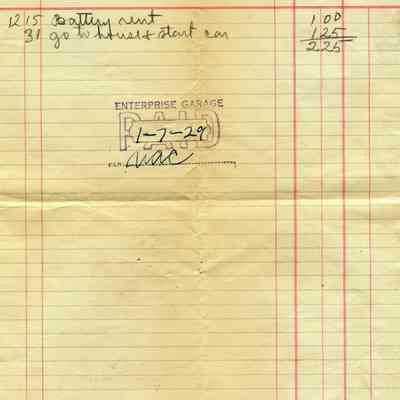 12 15 Battery rent 1 00
31 go to house & start car 1 25
2 25
ENTERPRISE GARAGE
PAID
1-7-29
PER